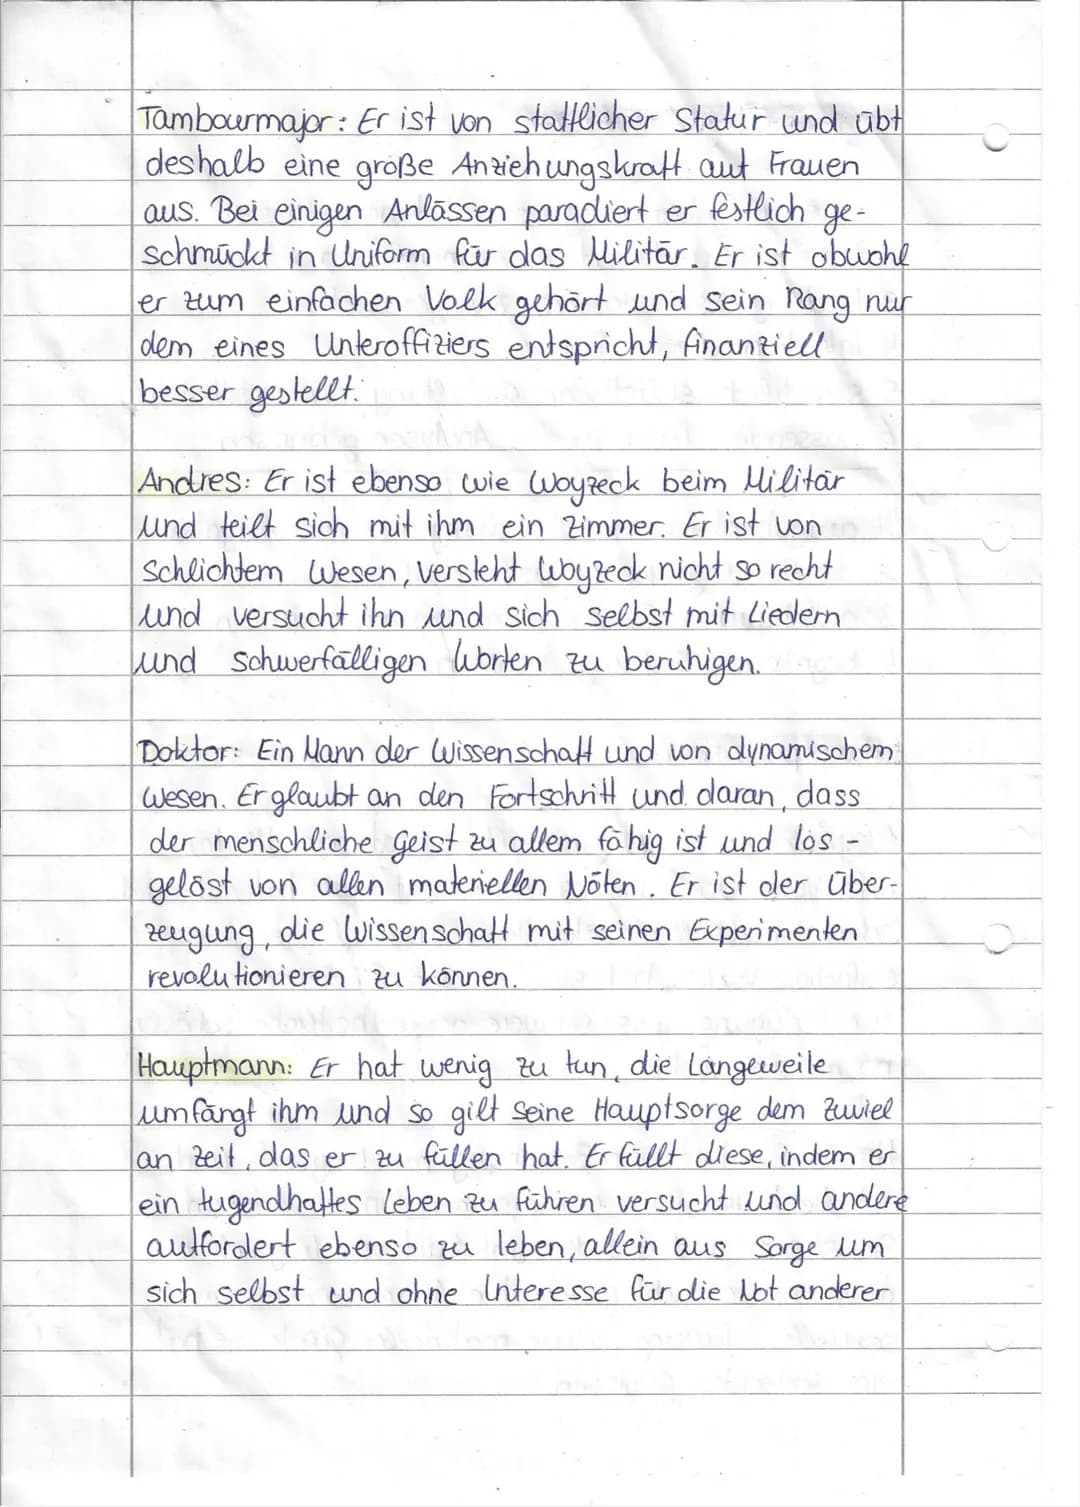 Tambourmajor: Er ist von stattlicher Statur und übt
deshalb eine große Anziehungskraft auf Frauen
aus. Bei einigen Anlässen paradiert er festlich ge-
schmückt in Uniform für das Militär. Er ist obwohl
er zum einfachen Volk gehört und sein Rang nur
dem eines Unteroffiziers entspricht, finanziell
besser gestellt.
Andres: Er ist ebenso wie Woyzeck beim Militär
und teilt sich mit ihm ein Zimmer. Er ist von
Schlichtem Wesen, versteht Woyzeck nicht so recht
und versucht ihn und sich selbst mit Liedern
und schwerfälligen Worten zu beruhigen.
Doktor: Ein Mann der Wissenschaft und von dynamischem
Wesen. Er glaubt an den Fortschritt und daran, dass
der menschliche Geist zu allem fähig ist und los-
gelöst von allen materiellen Nöten. Er ist der Über-
zeugung, die Wissenschaft mit seinen Experimenten
revolutionieren zu können.
Hauptmann: Er hat wenig zu tun, die Langeweile
umfängt ihm und so gilt seine Hauptsorge dem Zuviel
an Zeit, das er zu füllen hat. Er füllt diese, indem er
ein tugendhaftes Leben zu führen versucht und andere
auffordert ebenso zu leben, allein aus Sorge um
sich selbst und ohne Interesse für die Not anderer